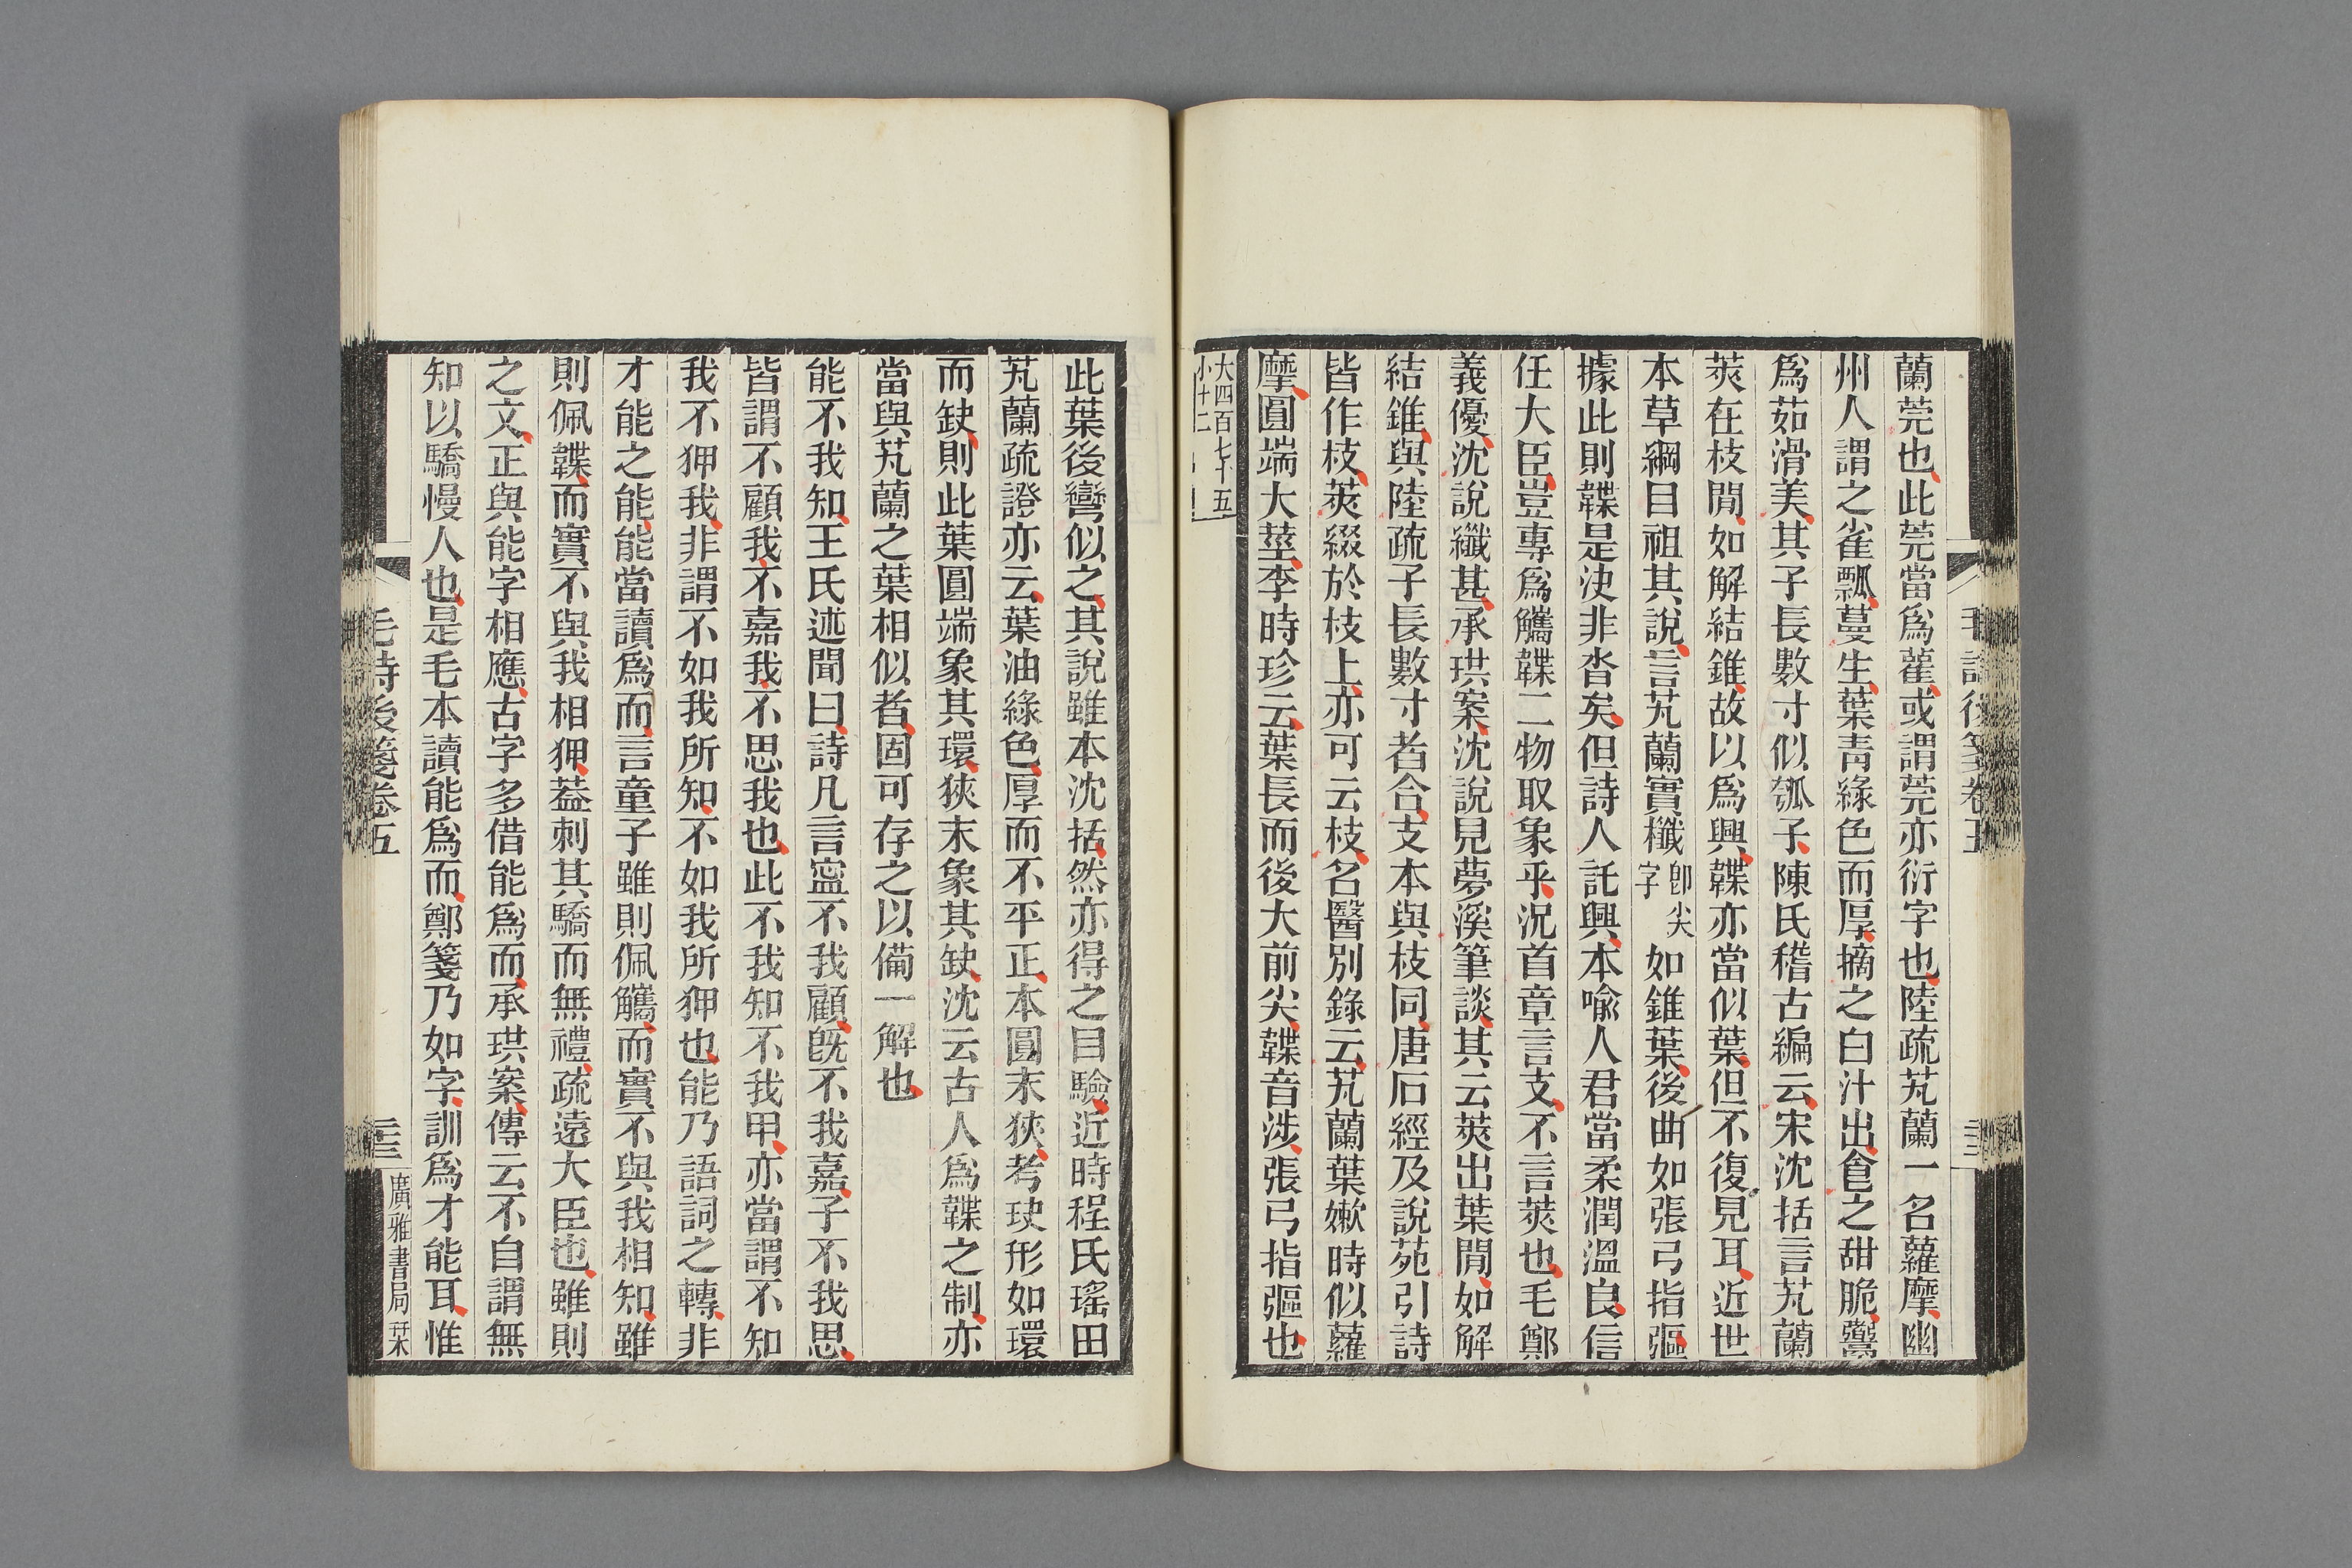 蘭莞也此莞當爲雚或謂莞亦衍字也陸疏芄蘭一名蘿摩幽
州人謂之雀瓢蔓生葉青綠色而厚摘之白汁出食之甜脆鬻
爲茹滑美其子長數寸似瓠子陳氏稽古編云宋沈括言芄蘭
莢在枝閒如解結錐故以爲興韘亦當似葉但不復見耳近世
本草綱目祖其說言芄蘭實櫼卽尖字如錐葉後曲如張弓指彄
據此則韘是決非沓矣但詩人託興本喻人君當柔潤溫良信
任大臣豈專爲觿韘二物取象乎況首章言支不言莢也毛鄭
義優沈說纖甚承珙案沈說見夢溪筆談其云莢出葉閒如解
結錐與陸疏子長數寸者合支本與枝同唐石經及說苑引詩
皆作枝莢綴於枝上亦可云枝名醫別錄云芄蘭葉嫰時似蘿
摩圓端大莖李時珍云葉長而後大前尖韘音涉張弓指彄也
大四百七十五
小廿二
毛詩後箋卷五
此葉後彎似之其說雖本沈括然亦得之目驗近時程氏瑤田
芄蘭疏證亦云葉油綠色厚而不平正本圓末狹考玦形如環
而缺則此葉圓端象其環狹末象其缺沈云古人爲韘之制亦
當與芄蘭之葉相似者固可存之以備一解也
能不我知王氏述聞曰詩凡言寧不我顧旣不我嘉子不我思
皆謂不顧我不嘉我不思我也此不我知不我甲亦當謂不知
我不狎我非謂不如我所知不如我所狎也能乃語詞之轉非
才能之能能當讀爲而言童子雖則佩觿而實不與我相知雖
則佩韘而實不與我相狎葢刺其驕而無禮疏遠大臣也雖則
之文正與能字相應古字多借能爲而承珙案傳云不自謂無
知以驕慢人也是毛本讀能爲而鄭箋乃如字訓爲才能耳惟
毛詩後箋卷五
廣雅書局栞